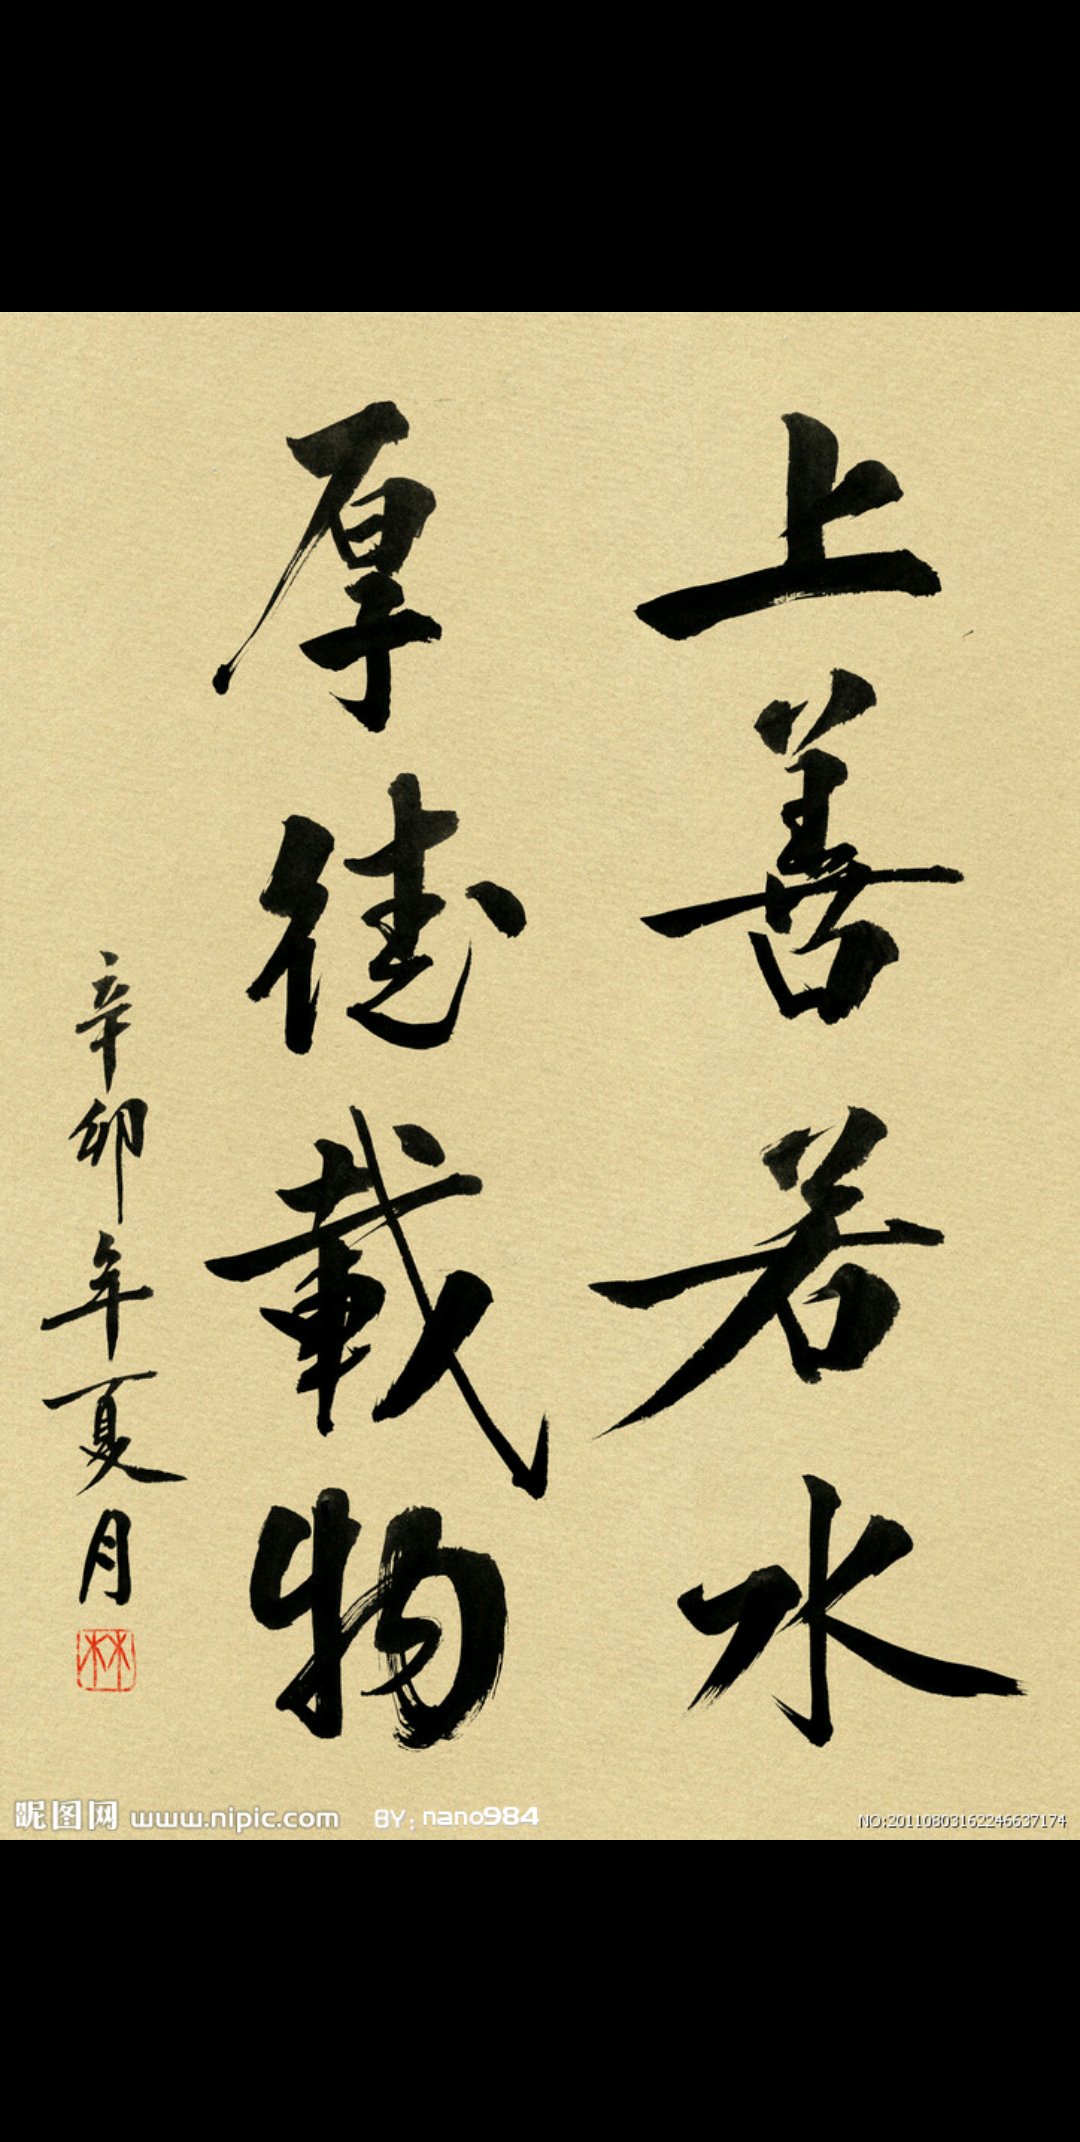 上善若水
厚德載物
辛卯年夏月
林
昵图网 www.nipic.com BY:nano984
NO:20110803162246637174